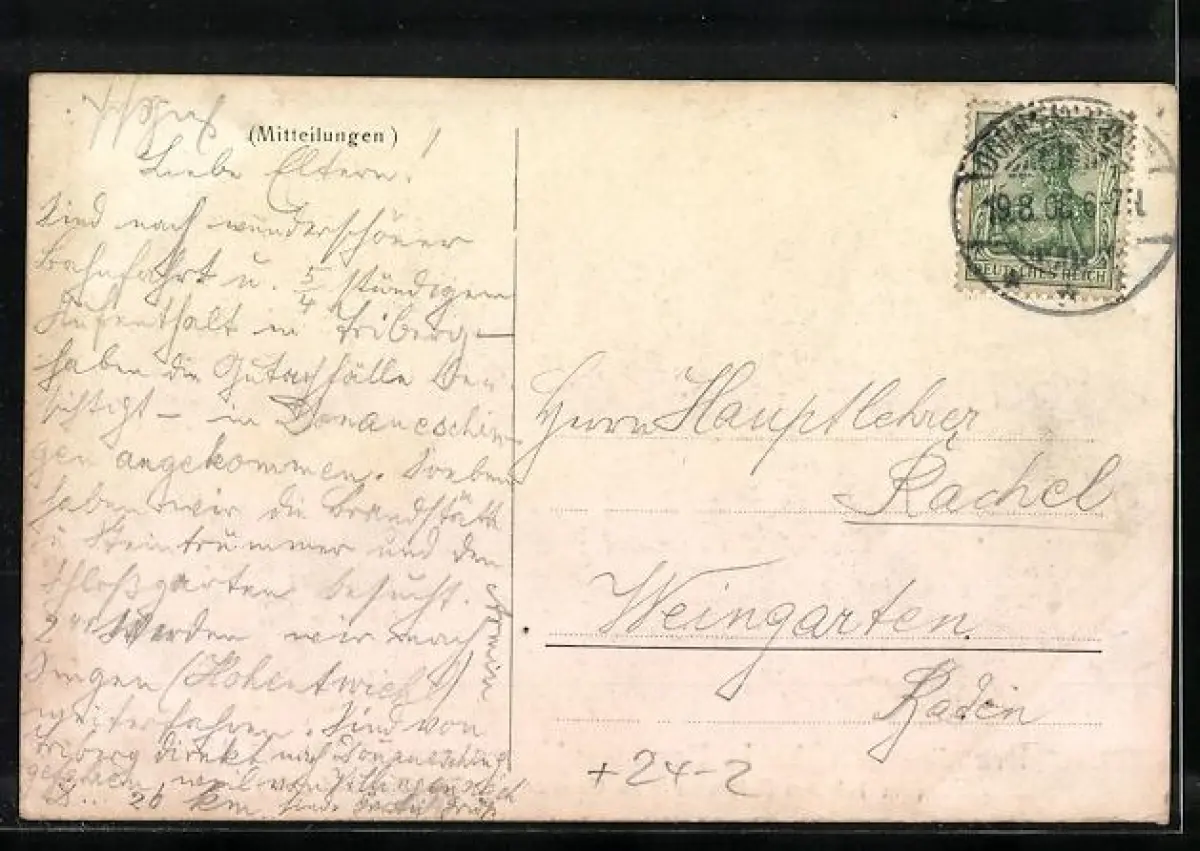 (Mitteilungen)
Liebe Eltern!
Sind nach wunderschöner
Bahnfahrt u. 5/4 stündigem
Aufenthalt in Triberg –
haben die Gutachfälle be-
sichtigt – in Donaueschin-
gen angekommen. Soeben
haben wir die Brandstätte
u. Steintrümmer und den
Schloßgarten besucht.
werden wir nach
Singen (Hohentwiel)
weiterfahren. Sind von
Triberg direkt nach Donaueschingen
gefahren, weil von Villingen
26 km
Armin
DEUTSCHES REICH
19.8.08. 6-7
Herrn Hauptlehrer
Rachel
Weingarten
Baden
+24-2